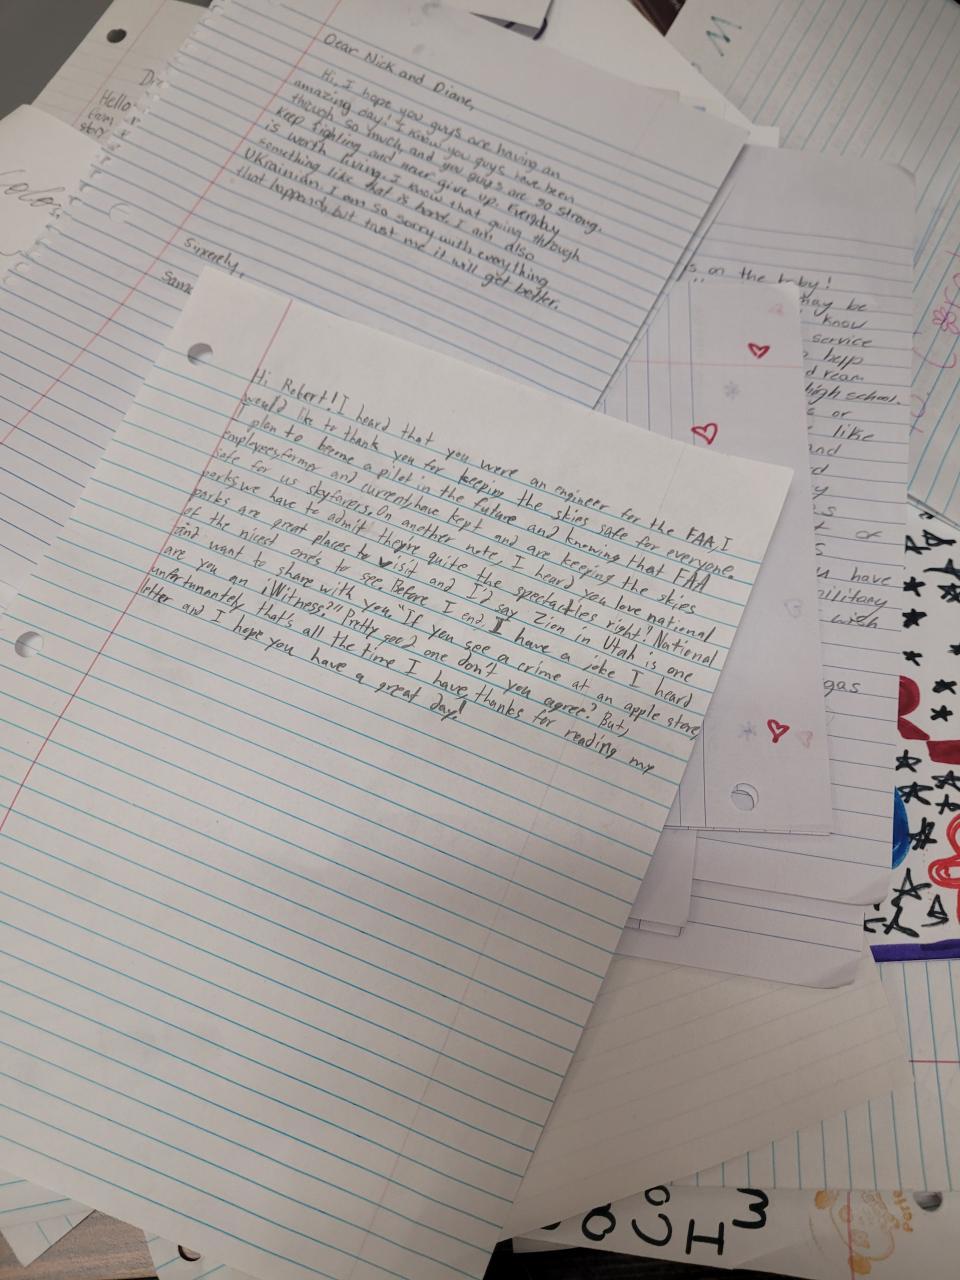 Dear Nick and Diane,
Hi, I hope you guys are having an
amazing day! I know you guys have been
through so much, and you guys are so strong.
keep fighting and never give up. Everyday
is worth living. I know that going through
something like that is hard. I am also
Ukrainian. I am so sorry with everything
that happend, but trust me it will get better.
Sincerely,
Hello
from
story
s on the baby!
may be
know
service
help
dream
high school.
s or
like
and
of
have
military
wish
gas
Hi Robert! I heard that you were an engineer for the FAA, I
would like to thank you for keeping the skies safe for everyone.
I plan to become a pilot in the future and knowing that FAA
employees, former and current, have kept and are keeping the skies
safe for us skyfarers. On another note, I heard you love national
parks, we have to admit they're quite the spectackles right? National
parks are great places to visit and I'd say Zion in Utah is one
of the niced one's to see. Before I end, I have a joke I heard
and want to share with you. "If you see a crime at an apple store,
are you an iWitness?" Pretty good one don't you agree? But,
unfortunantely that's all the time I have, thanks for reading my
letter and I hope you have a great day!
Co
I